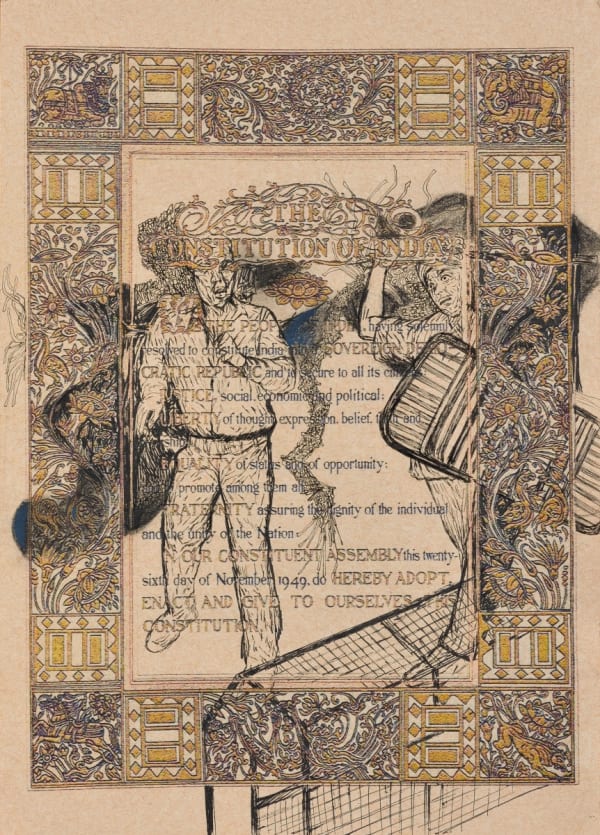 THE
CONSTITUTION OF INDIA
THE PEOPLE having solemnly
resolved to constitute India SOVEREIGN DEMO-
CRATIC REPUBLIC and to secure to all its
JUSTICE, social, economic and political;
LIBERTY of thought, expression, belief, faith and
EQUALITY of status and of opportunity;
promote among them all
FRATERNITY assuring the dignity of the individual
and the unity of the Nation;
OUR CONSTITUENT ASSEMBLY this twenty-
sixth day of November, 1949, do HEREBY ADOPT,
ENACT AND GIVE TO OURSELVES
CONSTITUTION